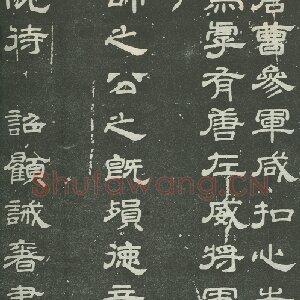 曹參軍咸扣心
焉雩有唐左威將軍
師之公之既損德音
悅待詔顧誠奢書
Shufawang.CN